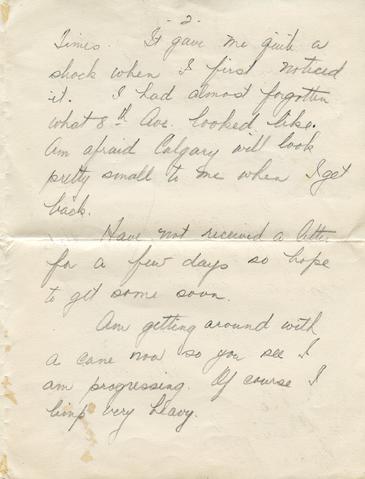 . 2.
Times. It gave me quite a
shock when I first noticed
it. I had almost forgotten
what 8th Ave. looked like.
Am afraid Calgary will look
pretty small to me when I get
back.
Have not received a letter
for a few days so hope
to get some soon.
Am getting around with
a cane now so you see I
am progressing. Of course I
limp very heavy.